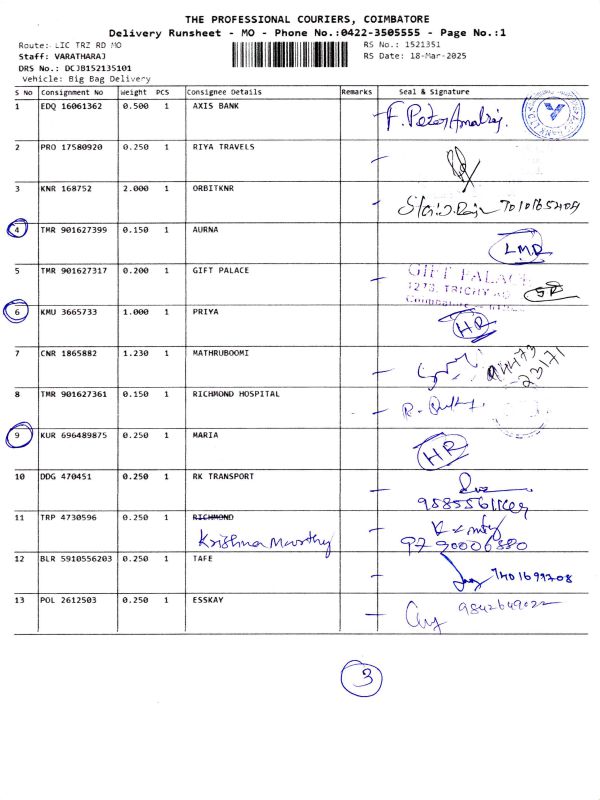 THE PROFESSIONAL COURIERS, COIMBATORE
Delivery Runsheet - MO - Phone No.:0422-3505555 - Page No.:1
Route: LIC TRZ RD MO
RS No.: 1521351
Staff: VARATHARAJ
RS Date: 18-Mar-2025
DRS No.: DCJB152135101
Vehicle: Big Bag Delivery
S No Consignment No Weight PCS Consignee Details Remarks Seal & Signature
1 EDQ 16061362 0.500 1 AXIS BANK F. Peter Amalraj.
2 PRO 17580920 0.250 1 RIYA TRAVELS
3 KNR 168752 2.000 1 ORBITKNR
4 TMR 901627399 0.150 1 AURNA LMR
5 TMR 901627317 0.200 1 GIFT PALACE GIFT PALACE
SR
6 KMU 3665733 1.000 1 PRIYA HR
7 CNR 1865882 1.230 1 MATHRUBOOMI
23171
8 TMR 901627361 0.150 1 RICHMOND HOSPITAL
9 KUR 696489875 0.250 1 MARIA HR
10 DDG 470451 0.250 1 RK TRANSPORT
11 TRP 4730596 0.250 1 RICHMOND
Krishna Moorthy
12 BLR 5910556203 0.250 1 TAFE
13 POL 2612503 0.250 1 ESSKAY
3